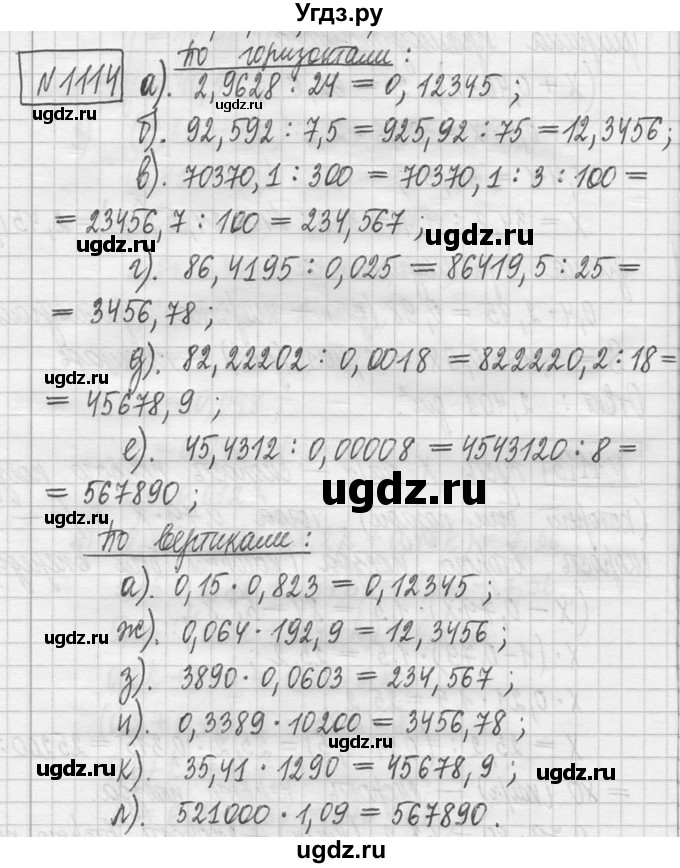 Угдз.ру
По горизонтали:
№1114 а). 2,9628 : 24 = 0,12345 ;
ugdz.ru ugdz.ru
б). 92,592 : 7,5 = 925,92 : 75 = 12,3456;
в). 70370,1 : 300 = 70370,1 : 3 : 100 =
= 23456,7 : 100 = 234,567 ;
ugdz.ru ugdz.ru
г). 86,4195 : 0,025 = 86419,5 : 25 =
= 3456,78 ;
д). 82,22202 : 0,0018 = 822220,2 : 18 =
ugdz.ru
= 45678,9 ;
е). 45,4312 : 0,00008 = 4543120 : 8 =
= 567890 ;
ugdz.ru
ugdz.ru
По вертикали :
а). 0,15 · 0,823 = 0,12345 ;
ж). 0,064 · 192,9 = 12,3456 ;
ugdz.ru
з). 3890 · 0,0603 = 234,567 ;
и). 0,3389 · 10200 = 3456,78 ;
ugdz.ru
к). 35,41 · 1290 = 45678,9 ;
ugdz.ru ugdz.ru
л). 521000 · 1,09 = 567890.
ugdz.ru